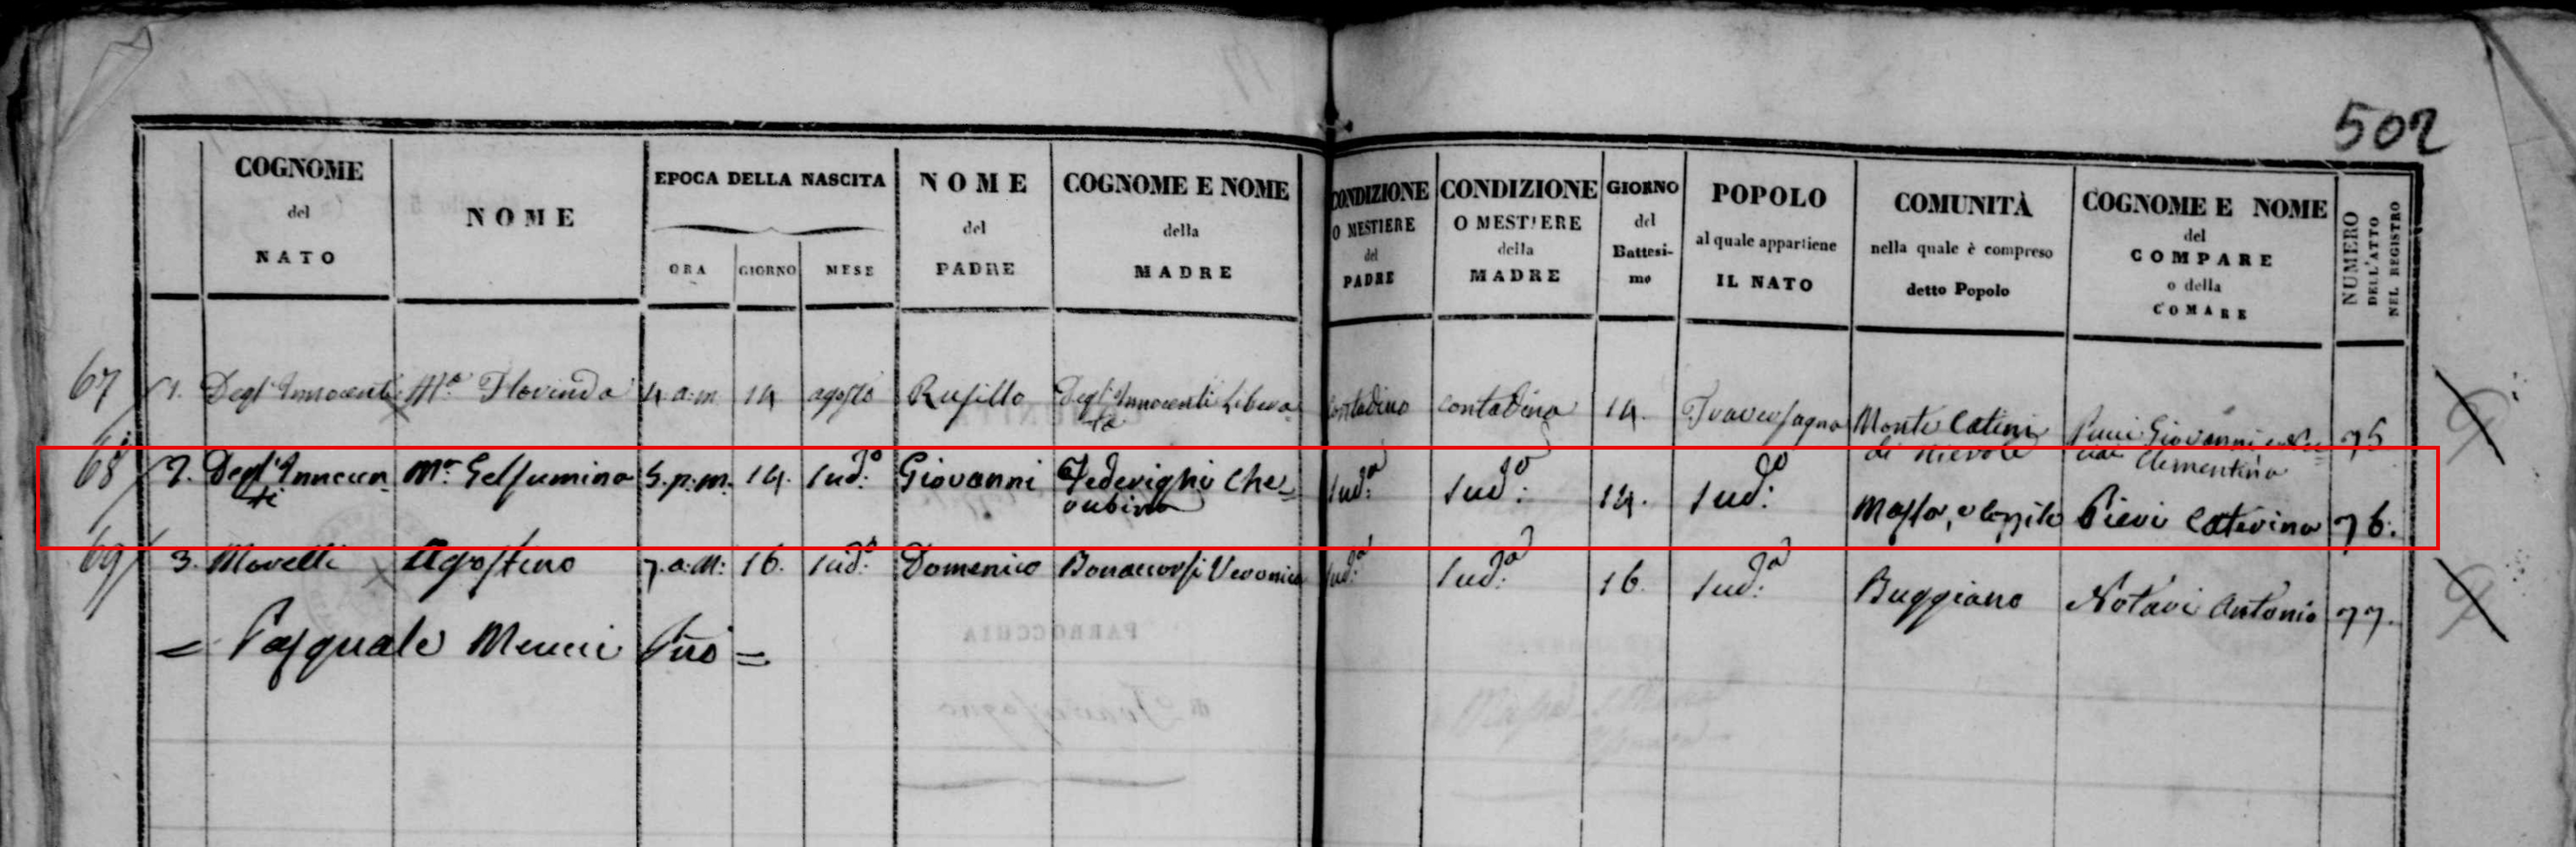 502
COGNOME
del
NATO
NOME
EPOCA DELLA NASCITA
ORA GIORNO MESE
NOME
del
PADRE
COGNOME E NOME
della
MADRE
CONDIZIONE
O MESTIERE
del
PADRE
CONDIZIONE
O MESTIERE
della
MADRE
GIORNO
del
Battesi-
mo
POPOLO
al quale appartiene
IL NATO
COMUNITÀ
nella quale è compreso
detto Popolo
COGNOME E NOME
del
COMPARE
o della
COMARE
NUMERO
DELL'ATTO
NEL REGISTRO
67 1. Degl'Innocenti Mª Florinda 4 a.m. 14 agosto Rusillo Degl'Innocenti Libera
ta
contadino contadina 14. Traversagna Monte Catini
di Nievole
Pucci Giovanni
Clementina
75
68 2. Degl'Innocen
ti
Mª Gelsumina 5. p.m. 14. sudº Giovanni Federighi Che=
rubina
sudº: sudº: 14. sudº: Massa, e Cozzile Pieri Caterina 76.
69 3. Morelli Agostino 7. a.M: 16. sudº: Domenico Bonaccorsi Veronica
sudº: sudª: 16. sudº: Buggiano Notari Antonio 77.
= Pasquale Meucci =
PARROCCHIA
di Traversagna